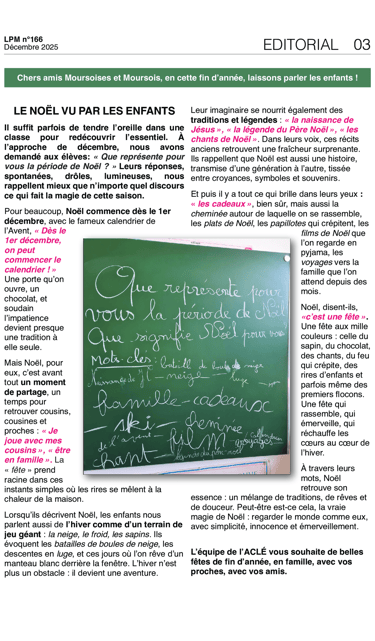 LPM n°166
Décembre 2025
EDITORIAL 03
Chers amis Moursoises et Moursois, en cette fin d'année, laissons parler les enfants !
LE NOËL VU PAR LES ENFANTS
Il suffit parfois de tendre l'oreille dans une
classe pour redécouvrir l'essentiel. À
l'approche de décembre, nous avons
demandé aux élèves: « Que représente pour
vous la période de Noël ? » Leurs réponses,
spontanées, drôles, lumineuses, nous
rappellent mieux que n'importe quel discours
ce qui fait la magie de cette saison.
Pour beaucoup, Noël commence dès le 1er
décembre, avec le fameux calendrier de
l'Avent, « Dès le
1er décembre,
on peut
commencer le
calendrier ! »
Une porte qu'on
ouvre, un
chocolat, et
soudain
l'impatience
devient presque
une tradition à
elle seule.
Mais Noël, pour
eux, c'est avant
tout un moment
de partage, un
temps pour
retrouver cousins,
cousines et
proches : « Je
joue avec mes
cousins », « être
en famille ». La
« fête » prend
racine dans ces
instants simples où les rires se mêlent à la
chaleur de la maison.
Lorsqu'ils décrivent Noël, les enfants nous
parlent aussi de l'hiver comme d'un terrain de
jeu géant : la neige, le froid, les sapins. Ils
évoquent les batailles de boules de neige, les
descentes en luge, et ces jours où l'on rêve d'un
manteau blanc derrière la fenêtre. L'hiver n'est
plus un obstacle : il devient une aventure.
Leur imaginaire se nourrit également des
traditions et légendes : « la naissance de
Jésus », « la légende du Père Noël », « les
chants de Noël ». Dans leurs voix, ces récits
anciens retrouvent une fraîcheur surprenante.
Ils rappellent que Noël est aussi une histoire,
transmise d'une génération à l'autre, tissée
entre croyances, symboles et souvenirs.
Et puis il y a tout ce qui brille dans leurs yeux :
« les cadeaux », bien sûr, mais aussi la
cheminée autour de laquelle on se rassemble,
les plats de Noël, les papillotes qui crépitent, les
films de Noël que
l'on regarde en
pyjama, les
voyages vers la
famille que l'on
attend depuis des
mois.
Noël, disent-ils,
«c'est une fête ».
Une fête aux mille
couleurs : celle du
sapin, du chocolat,
des chants, du feu
qui crépite, des
rires d'enfants et
parfois même des
premiers flocons.
Une fête qui
rassemble, qui
émerveille, qui
réchauffe les
cœurs au cœur de
l'hiver.
À travers leurs
mots, Noël
retrouve son
essence : un mélange de traditions, de rêves et
de douceur. Peut-être est-ce cela, la vraie
magie de Noël : regarder le monde comme eux,
avec simplicité, innocence et émerveillement.
L'équipe de l'ACLÉ vous souhaite de belles
fêtes de fin d'année, en famille, avec vos
proches, avec vos amis.
Que représente pour
vous la période de Noël
Que signifie Noël pour vous
Mots-clés: bataille de boules de neige
Naissance de J - neige - luge
famille - cadeaux
- ski - cheminée
chant - voyages